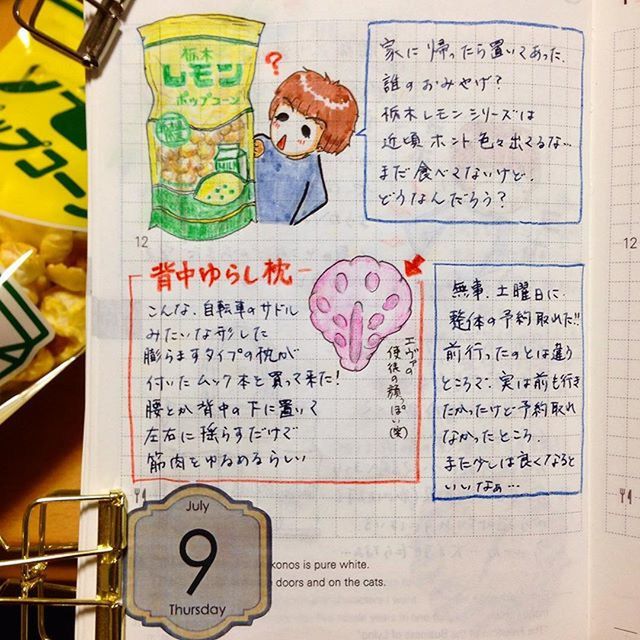 栃木
レモン
ポップコーン
MILK
?
家に帰ったら置いてあった。
誰のおみやげ?
栃木レモンシリーズは
近頃ホント色々出てるな…
まだ食べてないけど、
どうなんだろう?
12
背中ゆらし枕
こんな、自転車のサドル
みたいな形した
膨らますタイプの枕が
付いたムック本を買って来た!
腰とか背中の下に置いて
左右に揺らすだけで
筋肉をゆるめるらしい
エヴァの
使徒の顔っぽい(笑)
無事、土曜日に
整体の予約取れた!!
前行ったのとは違う
ところで、実は前も行き
たかったけど予約取れ
なかったところ。
また少しは良くなると
いいなぁ…
July
9
Thursday
konos is pure white.
doors and on the cats.